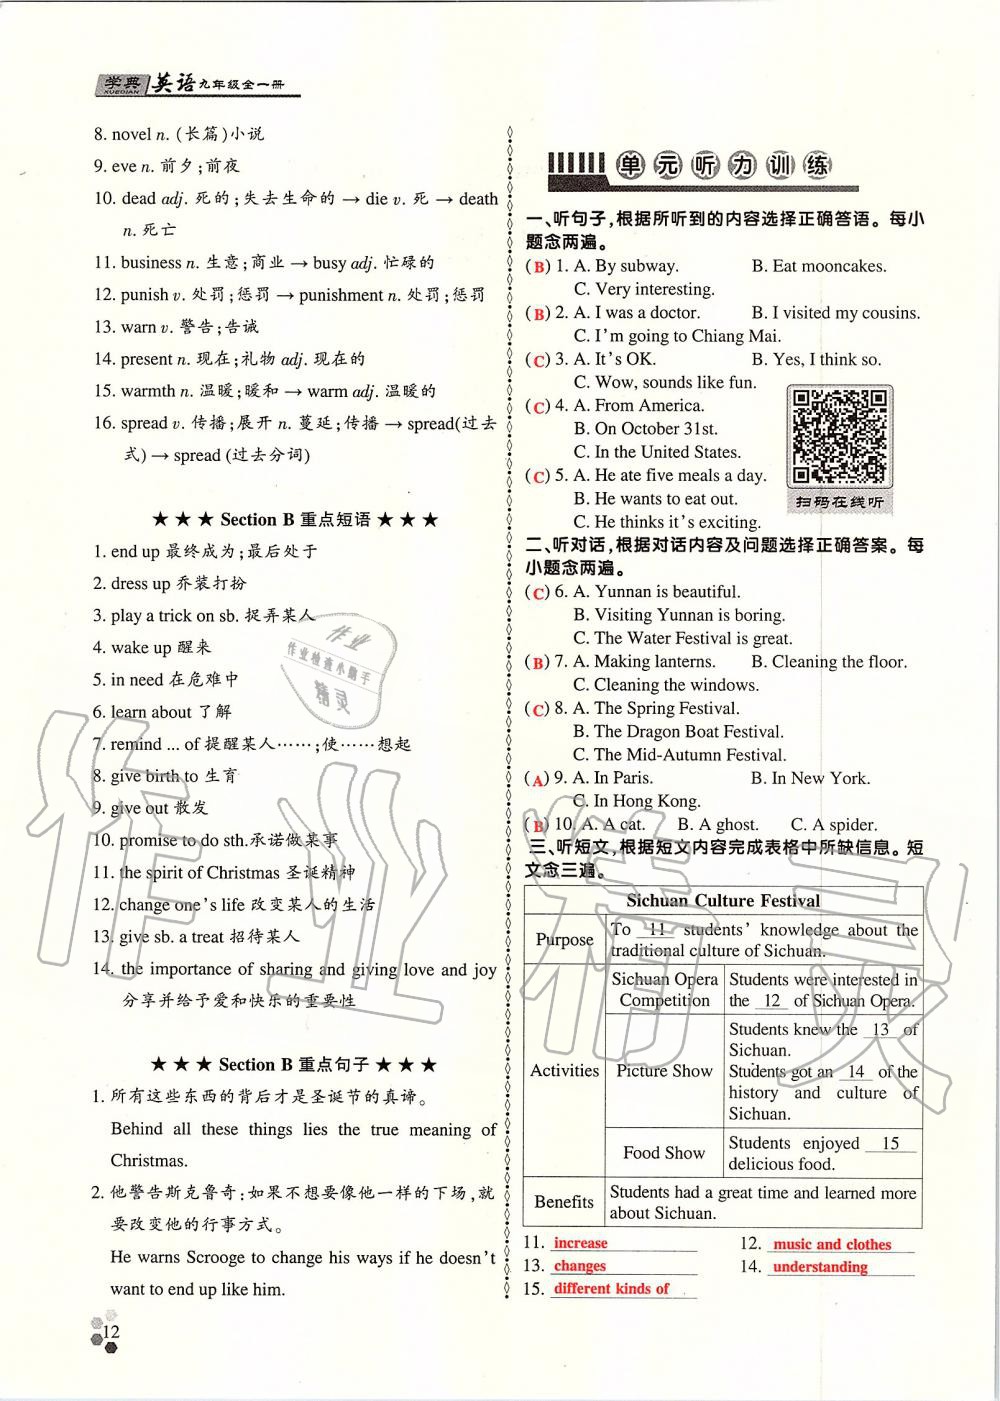 学典 英语九年级全一册
XUEDIAN
8. novel n. (长篇)小说
9. eve n. 前夕;前夜
10. dead adj. 死的;失去生命的 → die v. 死 → death
n. 死亡
11. business n. 生意;商业 → busy adj. 忙碌的
12. punish v. 处罚;惩罚 → punishment n. 处罚;惩罚
13. warn v. 警告;告诫
14. present n. 现在;礼物 adj. 现在的
15. warmth n. 温暖;暖和 → warm adj. 温暖的
16. spread v. 传播;展开 n. 蔓延;传播 → spread(过去
式) → spread (过去分词)
★ ★ ★ Section B 重点短语 ★ ★ ★
1. end up 最终成为;最后处于
2. dress up 乔装打扮
3. play a trick on sb. 捉弄某人
4. wake up 醒来
5. in need 在危难中
6. learn about 了解
7. remind ... of 提醒某人……;使……想起
8. give birth to 生育
9. give out 散发
10. promise to do sth.承诺做某事
11. the spirit of Christmas 圣诞精神
12. change one's life 改变某人的生活
13. give sb. a treat 招待某人
14. the importance of sharing and giving love and joy
分享并给予爱和快乐的重要性
★ ★ ★ Section B 重点句子 ★ ★ ★
1. 所有这些东西的背后才是圣诞节的真谛。
Behind all these things lies the true meaning of
Christmas.
2. 他警告斯克鲁奇:如果不想要像他一样的下场,就
要改变他的行事方式。
He warns Scrooge to change his ways if he doesn't
want to end up like him.
12
单元听力训练
一、听句子,根据所听到的内容选择正确答语。每小
题念两遍。
( B ) 1. A. By subway. B. Eat mooncakes.
C. Very interesting.
( B ) 2. A. I was a doctor. B. I visited my cousins.
C. I'm going to Chiang Mai.
( C ) 3. A. It's OK. B. Yes, I think so.
C. Wow, sounds like fun.
( C ) 4. A. From America.
B. On October 31st.
C. In the United States.
( C ) 5. A. He ate five meals a day.
B. He wants to eat out.
C. He thinks it's exciting.
扫码在线听
二、听对话,根据对话内容及问题选择正确答案。每
小题念两遍。
( C ) 6. A. Yunnan is beautiful.
B. Visiting Yunnan is boring.
C. The Water Festival is great.
( B ) 7. A. Making lanterns. B. Cleaning the floor.
C. Cleaning the windows.
( C ) 8. A. The Spring Festival.
B. The Dragon Boat Festival.
C. The Mid-Autumn Festival.
( A ) 9. A. In Paris. B. In New York.
C. In Hong Kong.
( B ) 10. A. A cat. B. A ghost. C. A spider.
三、听短文,根据短文内容完成表格中所缺信息。短
文念三遍。
Sichuan Culture Festival
Purpose
To 11 students' knowledge about the
traditional culture of Sichuan.
Activities
Sichuan Opera
Competition
Students were interested in
the 12 of Sichuan Opera.
Picture Show
Students knew the 13 of
Sichuan.
Students got an 14 of the
history and culture of
Sichuan.
Food Show
Students enjoyed 15
delicious food.
Benefits
Students had a great time and learned more
about Sichuan.
11. increase 12. music and clothes
13. changes 14. understanding
15. different kinds of
作业
作业检查小助手
精灵
作业精灵